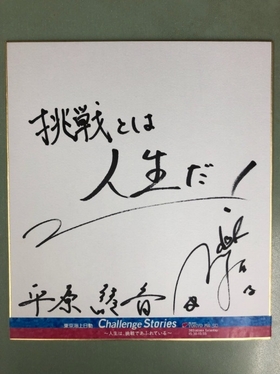 挑戦とは
人生だ!
平原 綾香
東京海上日動 Challenge Stories
〜人生は、挑戦であふれている〜